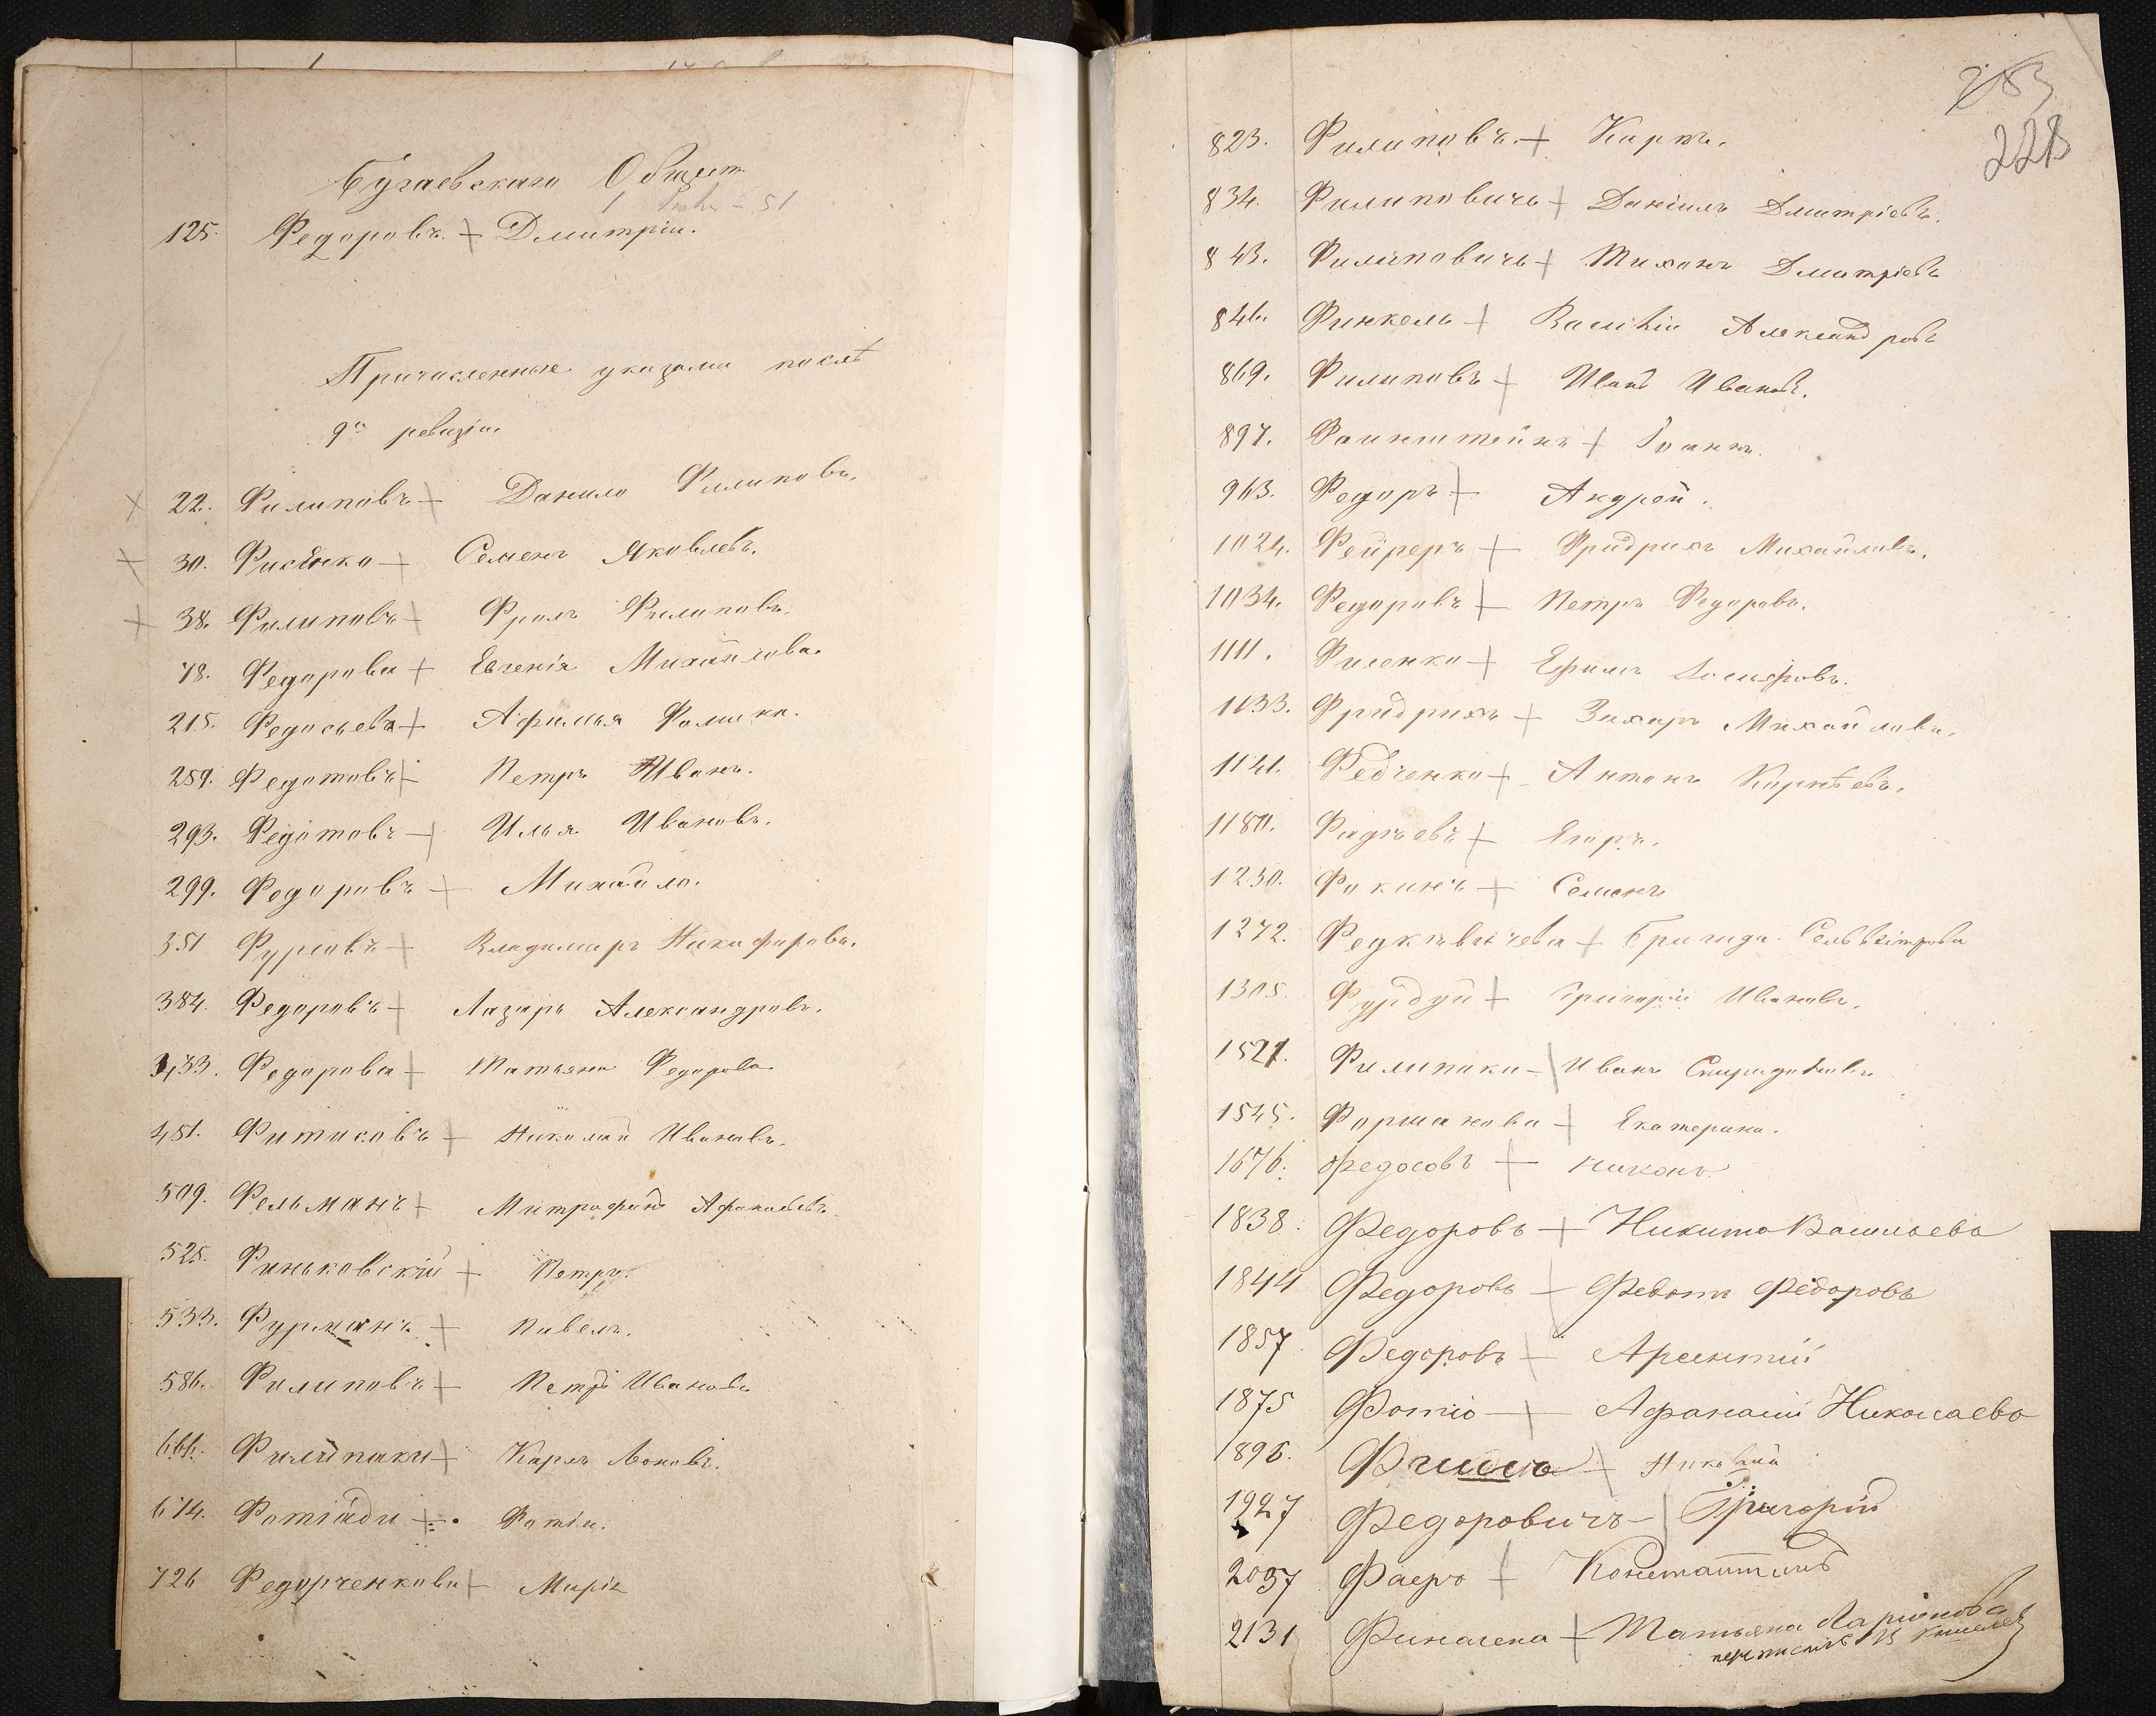 Бугаевскаго Общест
125. Федоровъ. Дмитрій.
Причисленные указами послѣ
9й ревизіи.
22. Филиповъ Данило Филиповъ.
30. Семенъ Яковлевъ.
38. Филиповъ Фролъ Филиповъ.
78. Федорова Евгенія Михайлова.
215. Федосьева Афимья
289. Федотовъ Петръ Иванъ.
293. Федотовъ Илья Ивановъ.
299. Федоровъ Михайло.
351 Фурсовъ Владимиръ Никифоровъ.
384. Федоровъ Лазарь Александровъ.
433. Федорова Татьяна Федорова
481. Николай Ивановъ.
509. Фельманъ Митрофанъ
525. Финьковскій Петръ.
533. Фурманъ Павелъ.
586. Филиповъ Петръ Ивановъ
666. Филипаки Карлъ
674. Фотіади Фотій.
726 Федорченкова Марія
283
228
823. Филиповъ. Карпъ.
834. Филиповичъ Даніилъ Дмитріевъ.
843. Филиповичъ Тихонъ Дмитріевъ
846. Финкель Василій Александровъ
869. Филиповъ Иванъ Ивановъ.
897. Фаинштейнъ
963. Федоръ Андрей.
1024. Фейреръ Фридрихъ Михайловъ.
1034. Федоровъ Петръ Федоровъ.
1111. Филенко Ефимъ
1133. Фридрихъ Захаръ Михайловъ.
1141. Федченко Антонъ Корнѣевъ.
1180. Фадѣевъ Егоръ.
1230. Фокинъ Семенъ
1272. Федкѣвичева Бригида
1305. Фурдуй Григорій Ивановъ.
1527. Филипаки Иванъ Спиридоновъ
1545. Форманова Екатерина.
1676. Федосовъ Никонъ
1838. Федоровъ Никита Васильевъ
1844 Федоровъ Федотъ Федоровъ
1857 Федоровъ Арсентій
1875 Фотіо Афанасій Николаевъ
1896. Николай
1927 Федоровичъ Григорій
2037 Фаеръ Константинъ
2131 Татьяна Ларіонова